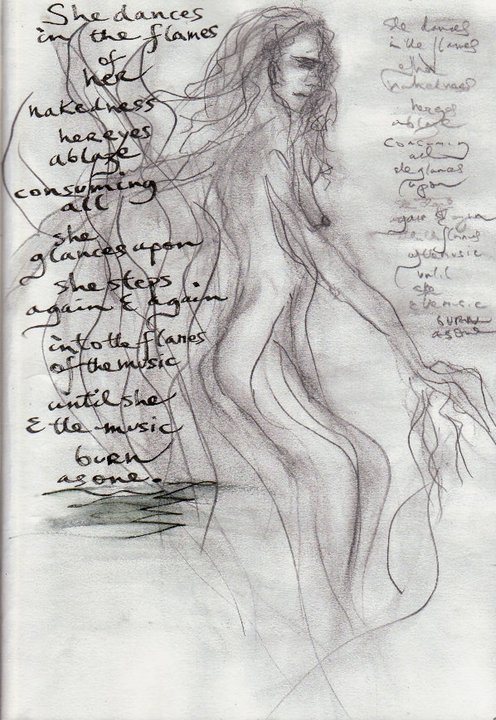 She dances
in the flames
of
her
nakedness
her eyes
ablaze
consuming
all
she
glances upon
she steps
again & again
into the flames
of the music
until she
& the music
burn
as one.
she dances
in the flames
of her
nakedness
her eyes
ablaze
consuming
all
she glances
upon
she steps
again & again
into the flames
of the music
until
she
& the music
burn
as one